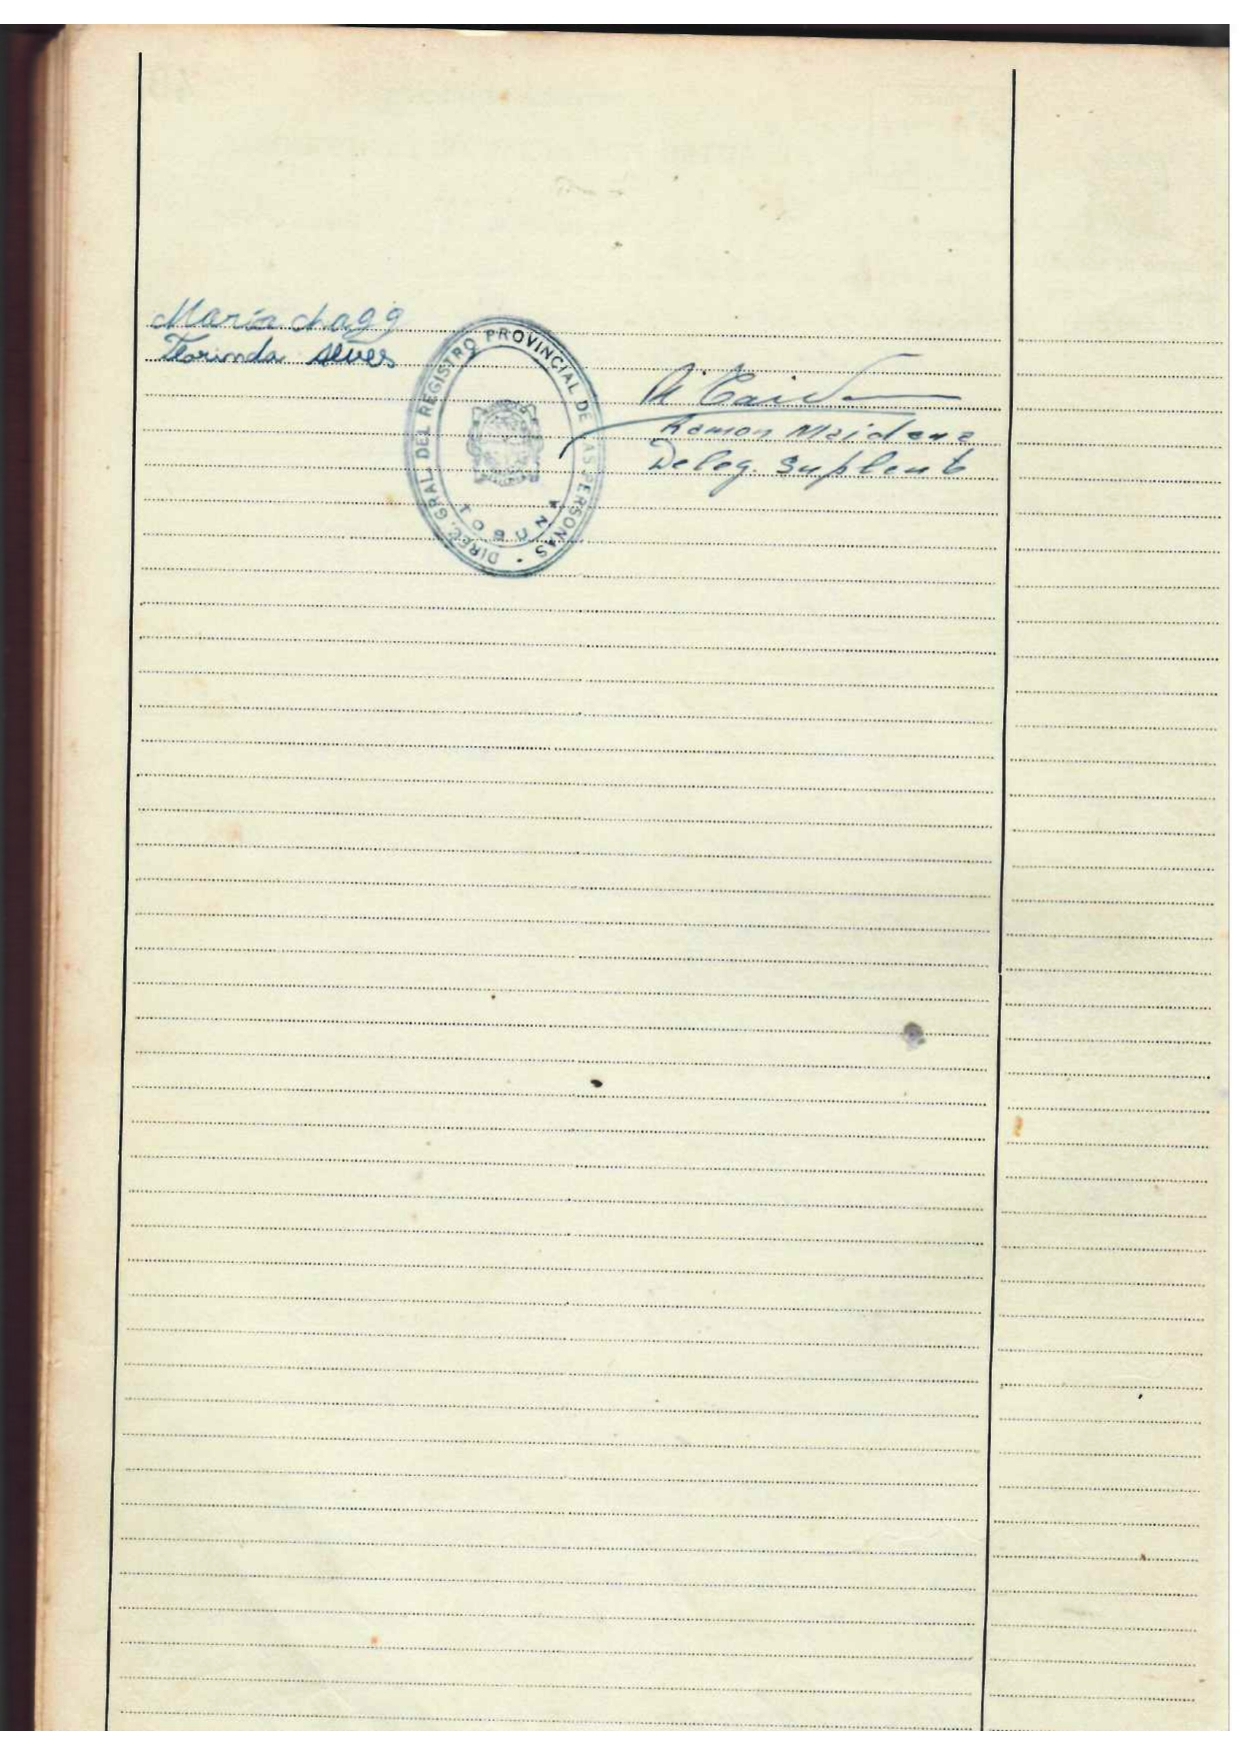 María
Alves
DIREC. GRAL. DEL REGISTRO PROVINCIAL DE LAS PERSONAS
TOBUNA
Ramon Maidana
Deleg. Suplente